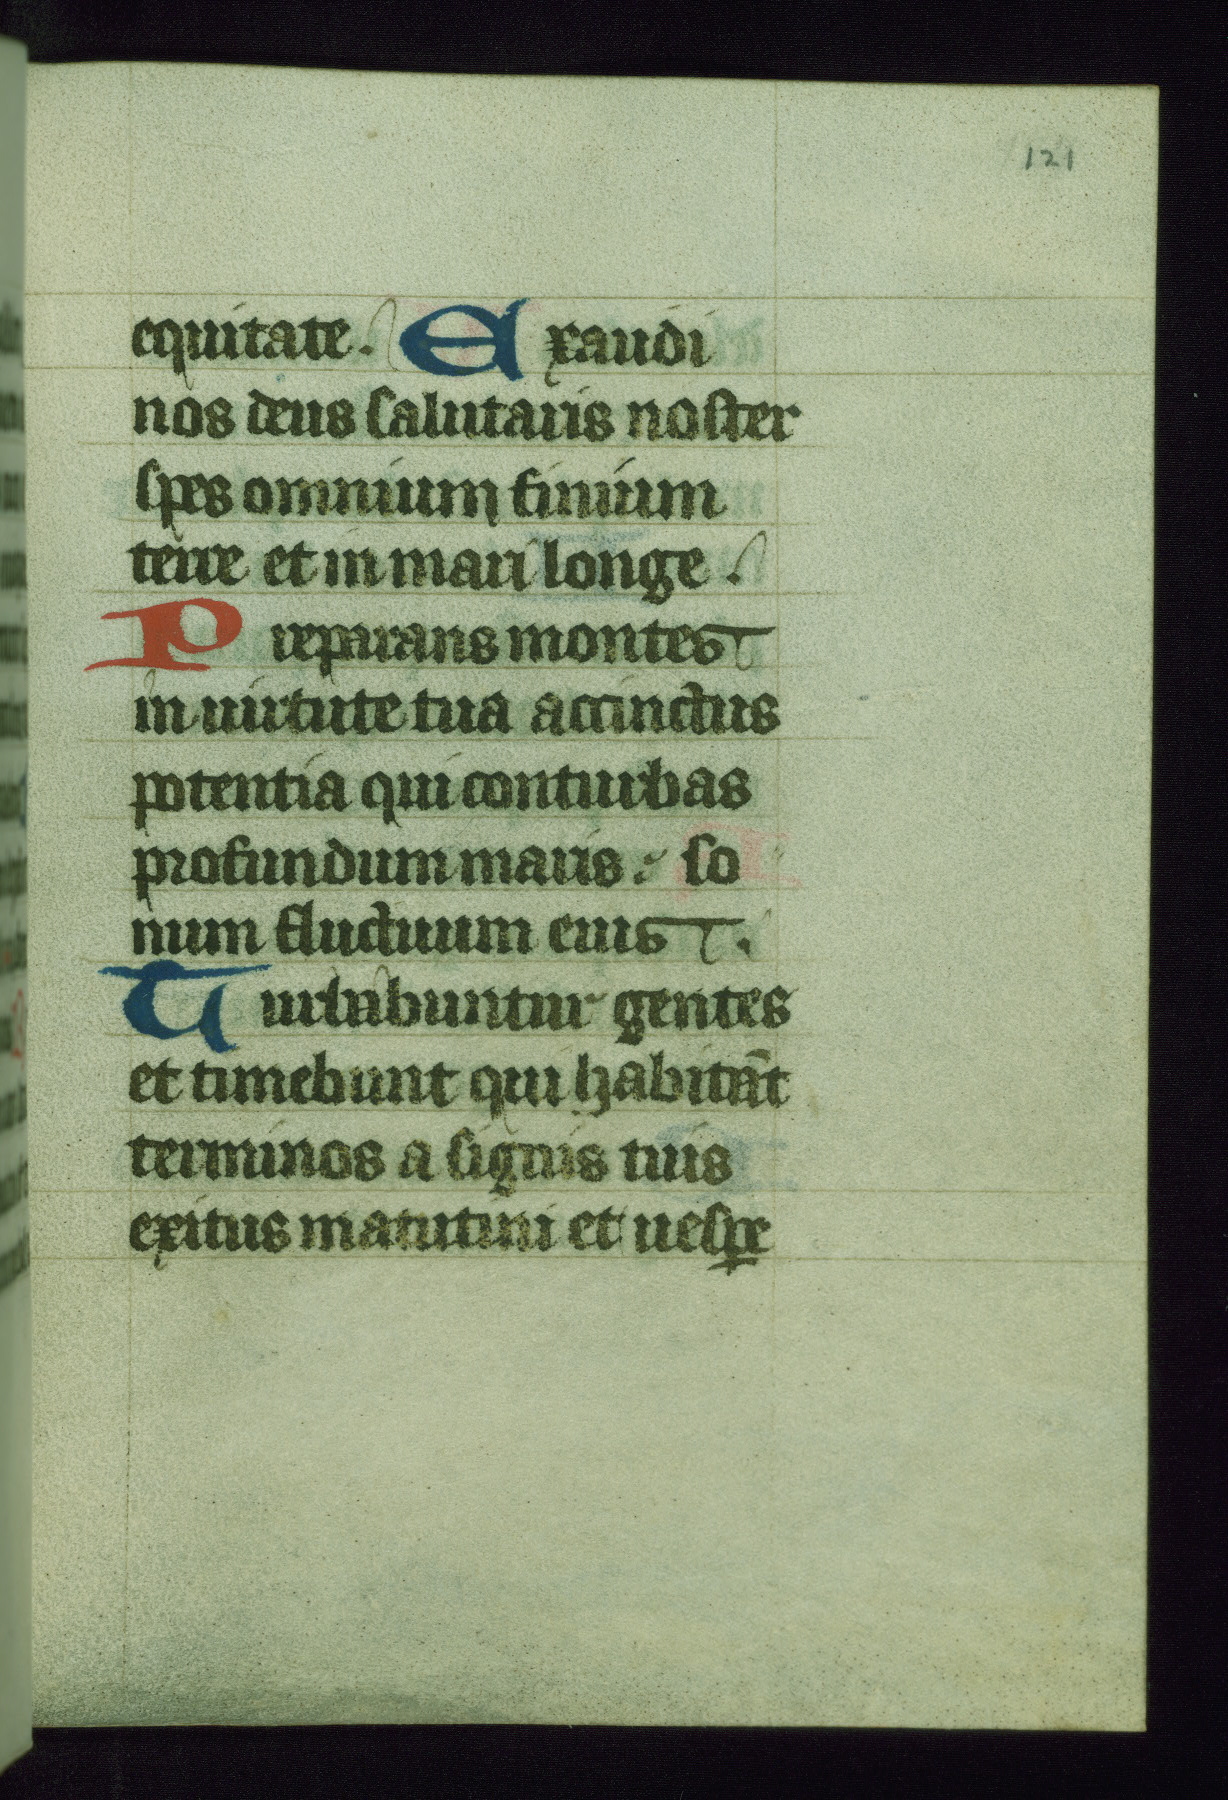 121
equitate. Exaudi
nos deus salutaris noster
spes omnium finium
terre et in mari longe.
Preparans montes
in uirtute tua accinctus
potentia qui conturbas
profundum maris: so
num fluctuum eius.
Turbabuntur gentes
et timebunt qui habitāt
terminos a signis tuis
exitus matutini et uesꝑe